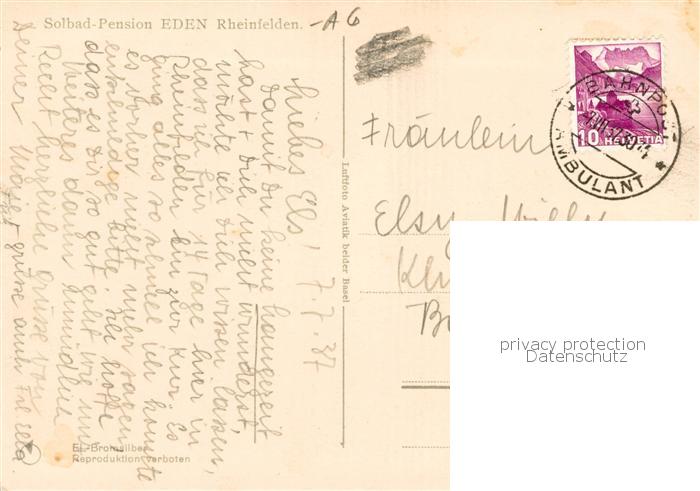 Solbad-Pension EDEN Rheinfelden.
-A6
7.7.37
Liebes Els!
Damit Du keine Langezeit
hast & Dich nicht wunderst,
möchte ich Dich wissen lassen,
dass ich für 14 Tage hier in
Rheinfelden bin zur Kur. Es
ging alles so schnell ich konnte
es vorher nicht mehr sagen
entschuldige bitte. Ich hoffe
dass es Dir so gut geht wie mir
Weiteres dann mündlich
Recht herzliche Grüsse von
Deiner
grüsse auch Frl Ella
El-Bromsilber
Reproduktion verboten
Luftfoto Aviatik beider Basel
BAHNPOST
AMBULANT
10 HELVETIA
Fräulein
Elsy
privacy protection
Datenschutz